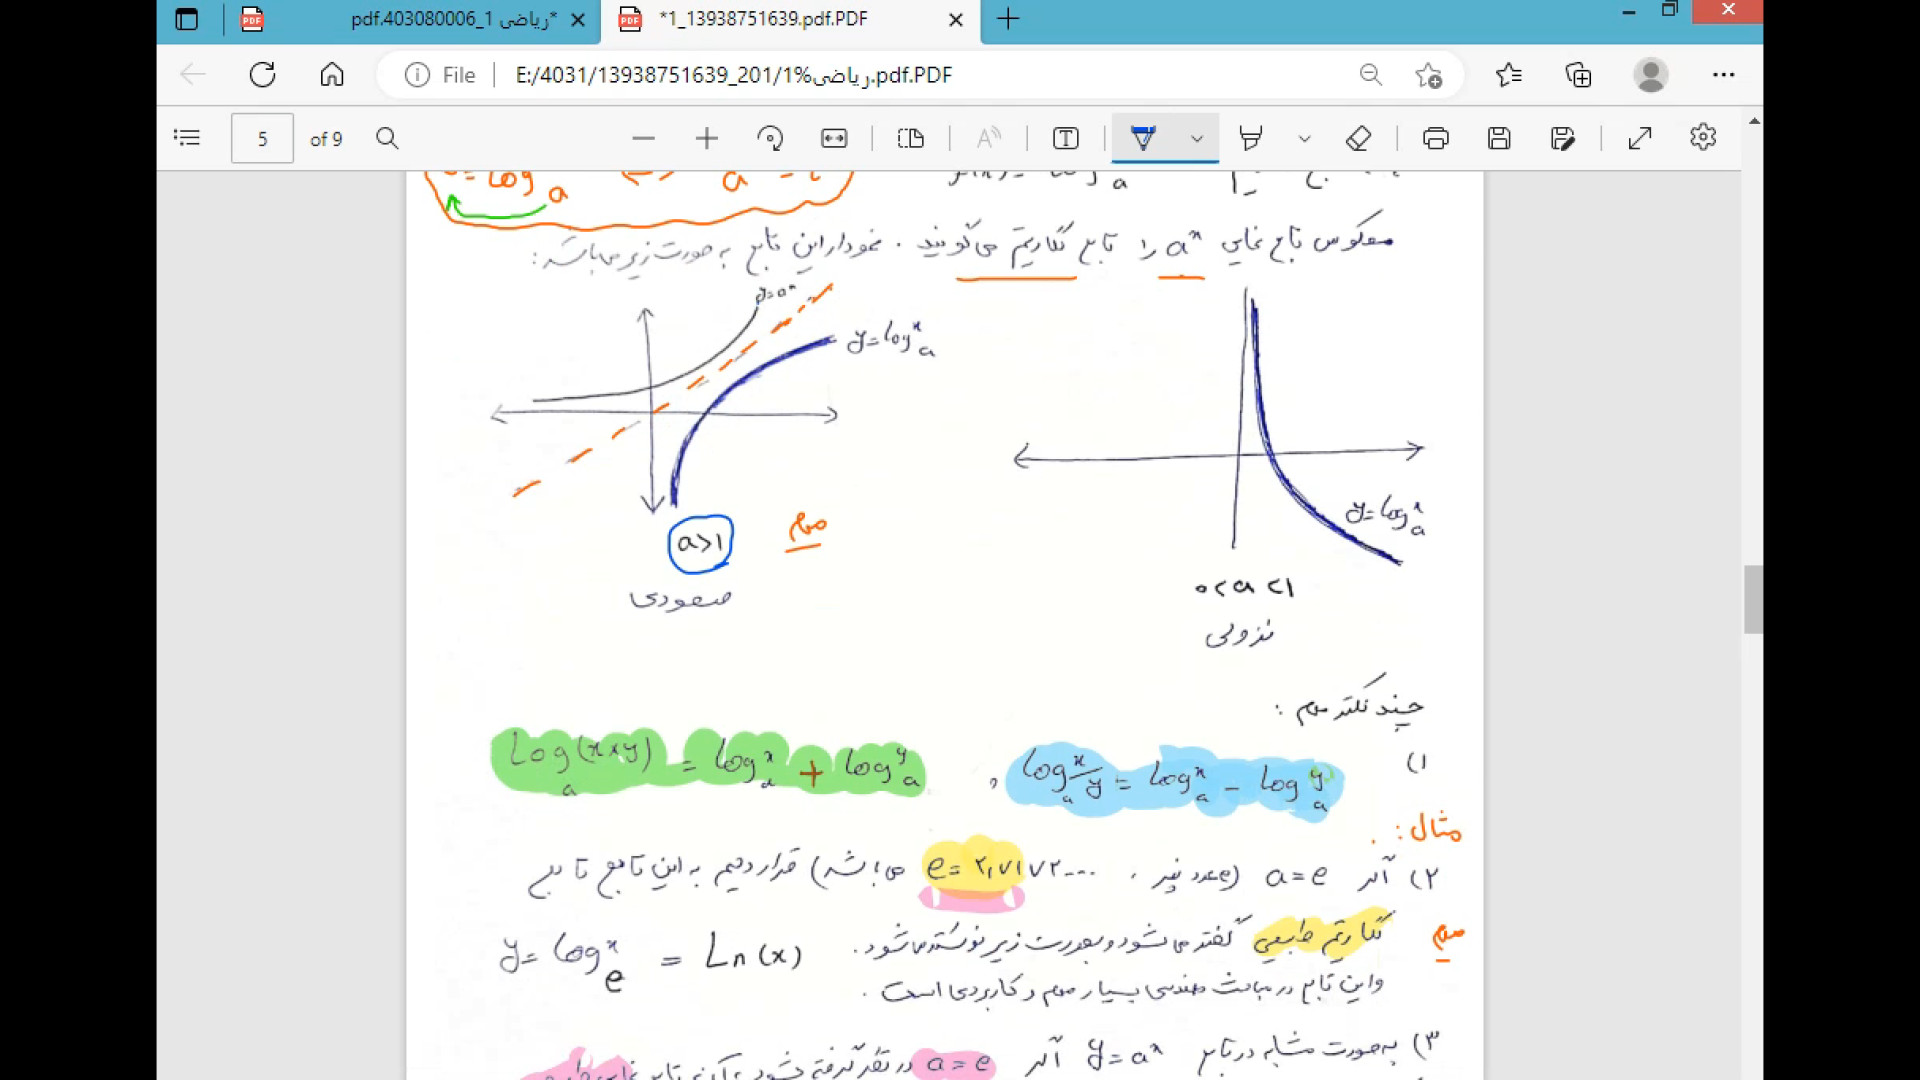 *ریاضی 1_403080006.pdf
*1_13938751639.pdf.PDF
File E:/4031/13938751639_201/1%ریاضی.pdf.PDF
5 of 9
= log a
a
معکوس تابع نمایی aˣ را تابع لگاریتم می‌گویند . نمودار این تابع به صورت زیر می‌باشد :
y=aˣ
y=logₐˣ
y=logₐˣ
a>1 مهم
صعودی
۰<a<1
نزولی
چند نکته مهم :
۱) logₐ(x×y) = logₐˣ + logₐʸ , logₐ x/y = logₐˣ − logₐʸ
مثال :
۲) اگر a=e (e عدد نپر , e= ۲٫۷۱۷۲... می باشد) قرار دهیم به این تابع تابع
لگاریتم طبیعی گفته می‌شود و بصورت زیر نوشته می‌شود . y= logₑˣ = Ln(x) مهم
و این تابع در مباحث مهندسی بسیار مهم و کاربردی است .
۳) به صورت مشابه در تابع y=aˣ اگر a=e در نظر گرفته شود